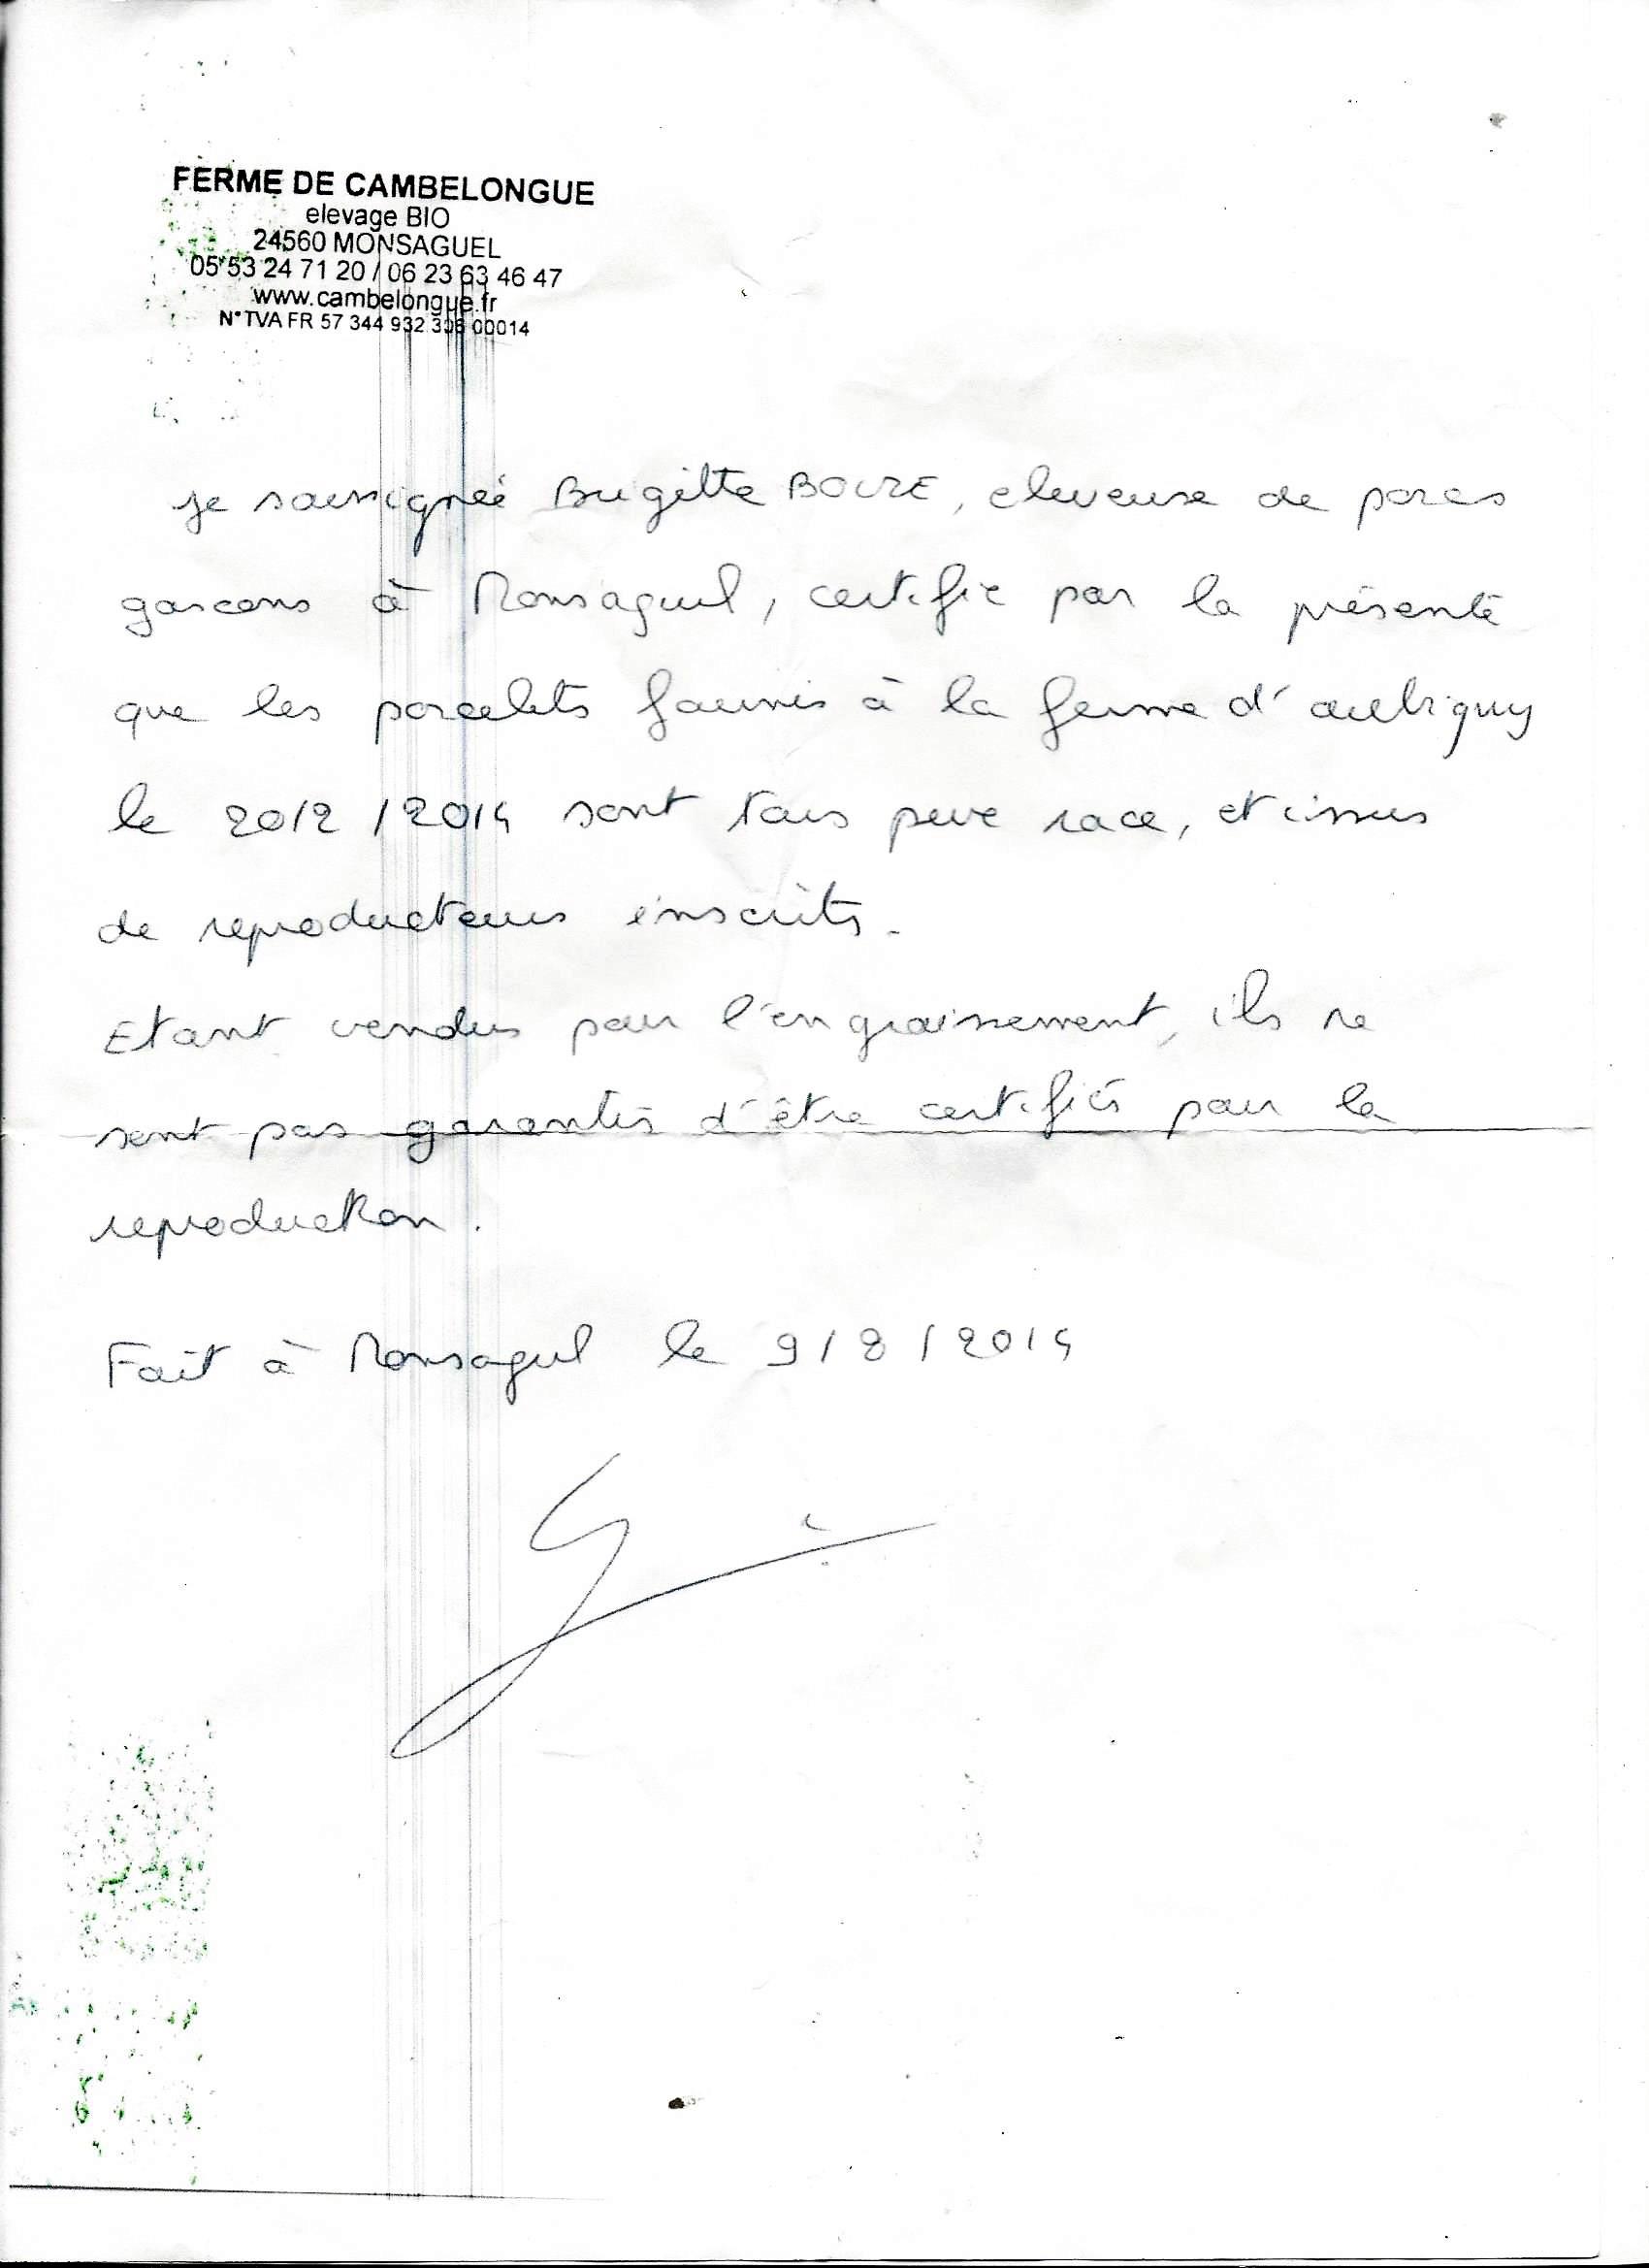 FERME DE CAMBELONGUE
elevage BIO
24560 MONSAGUEL
05 53 24 71 20 / 06 23 63 46 47
www.cambelongue.fr
N° TVA FR 57 344 932 306 00014
je soussignée Brigitte, eleveuse de porcs
gascons à Monsaguel, certifie par la présente
que les porcelets fournis à la ferme d'aubigny
le /2014 sont tous pure race, et issus
de reproducteurs inscrits.
Etant vendus pour l'engraissement, ils ne
sont pas garantis d'être certifiés pour la
reproduction.
Fait à Monsaguel le 9/8/2014